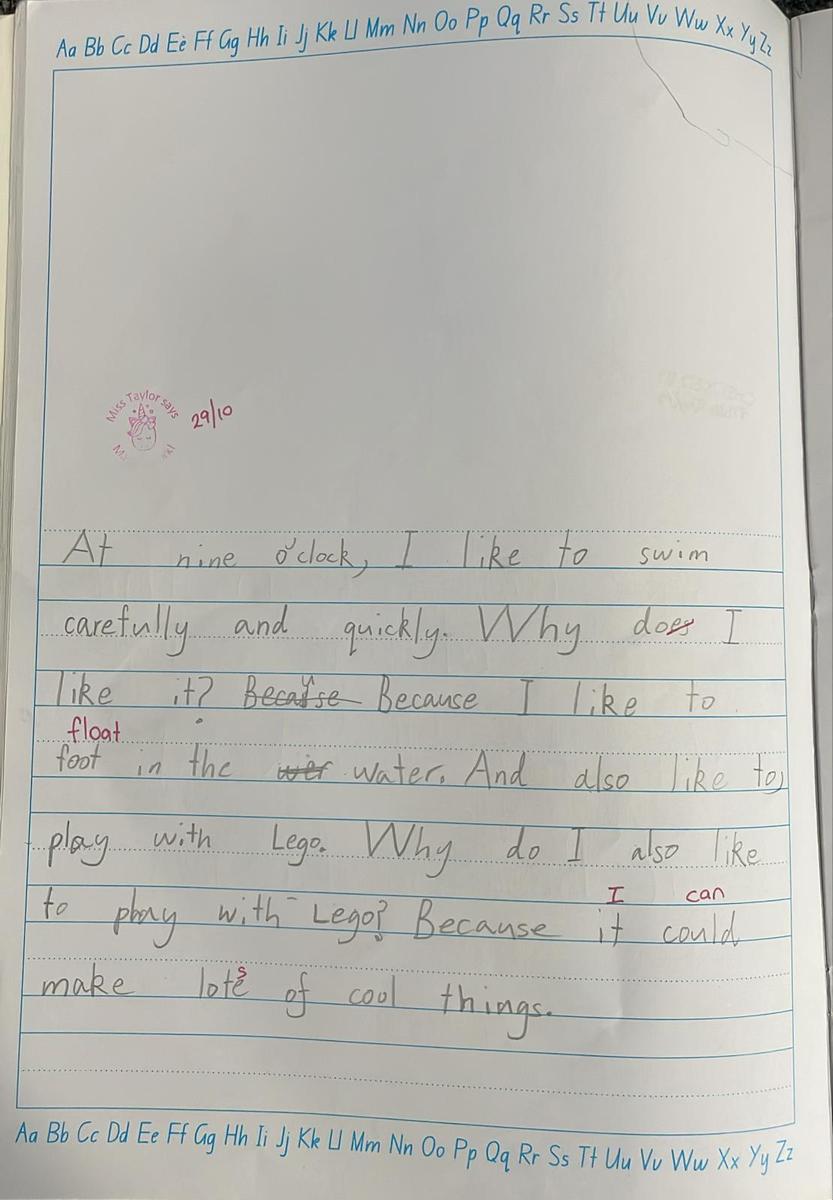 Aa Bb Cc Dd Ee Ff Gg Hh Ii Jj Kk Ll Mm Nn Oo Pp Qq Rr Ss Tt Uu Vv Ww Xx Yy Zz
Miss Taylor says
29/10
At nine o'clock, I like to swim
carefully and quickly. Why does I
like it? Becaise Because I like to
float
foot in the wer water. And also like to
play with Lego. Why do I also like
I can
to play with Lego? Because it could
s
make lote of cool things.
Aa Bb Cc Dd Ee Ff Gg Hh Ii Jj Kk Ll Mm Nn Oo Pp Qq Rr Ss Tt Uu Vv Ww Xx Yy Zz